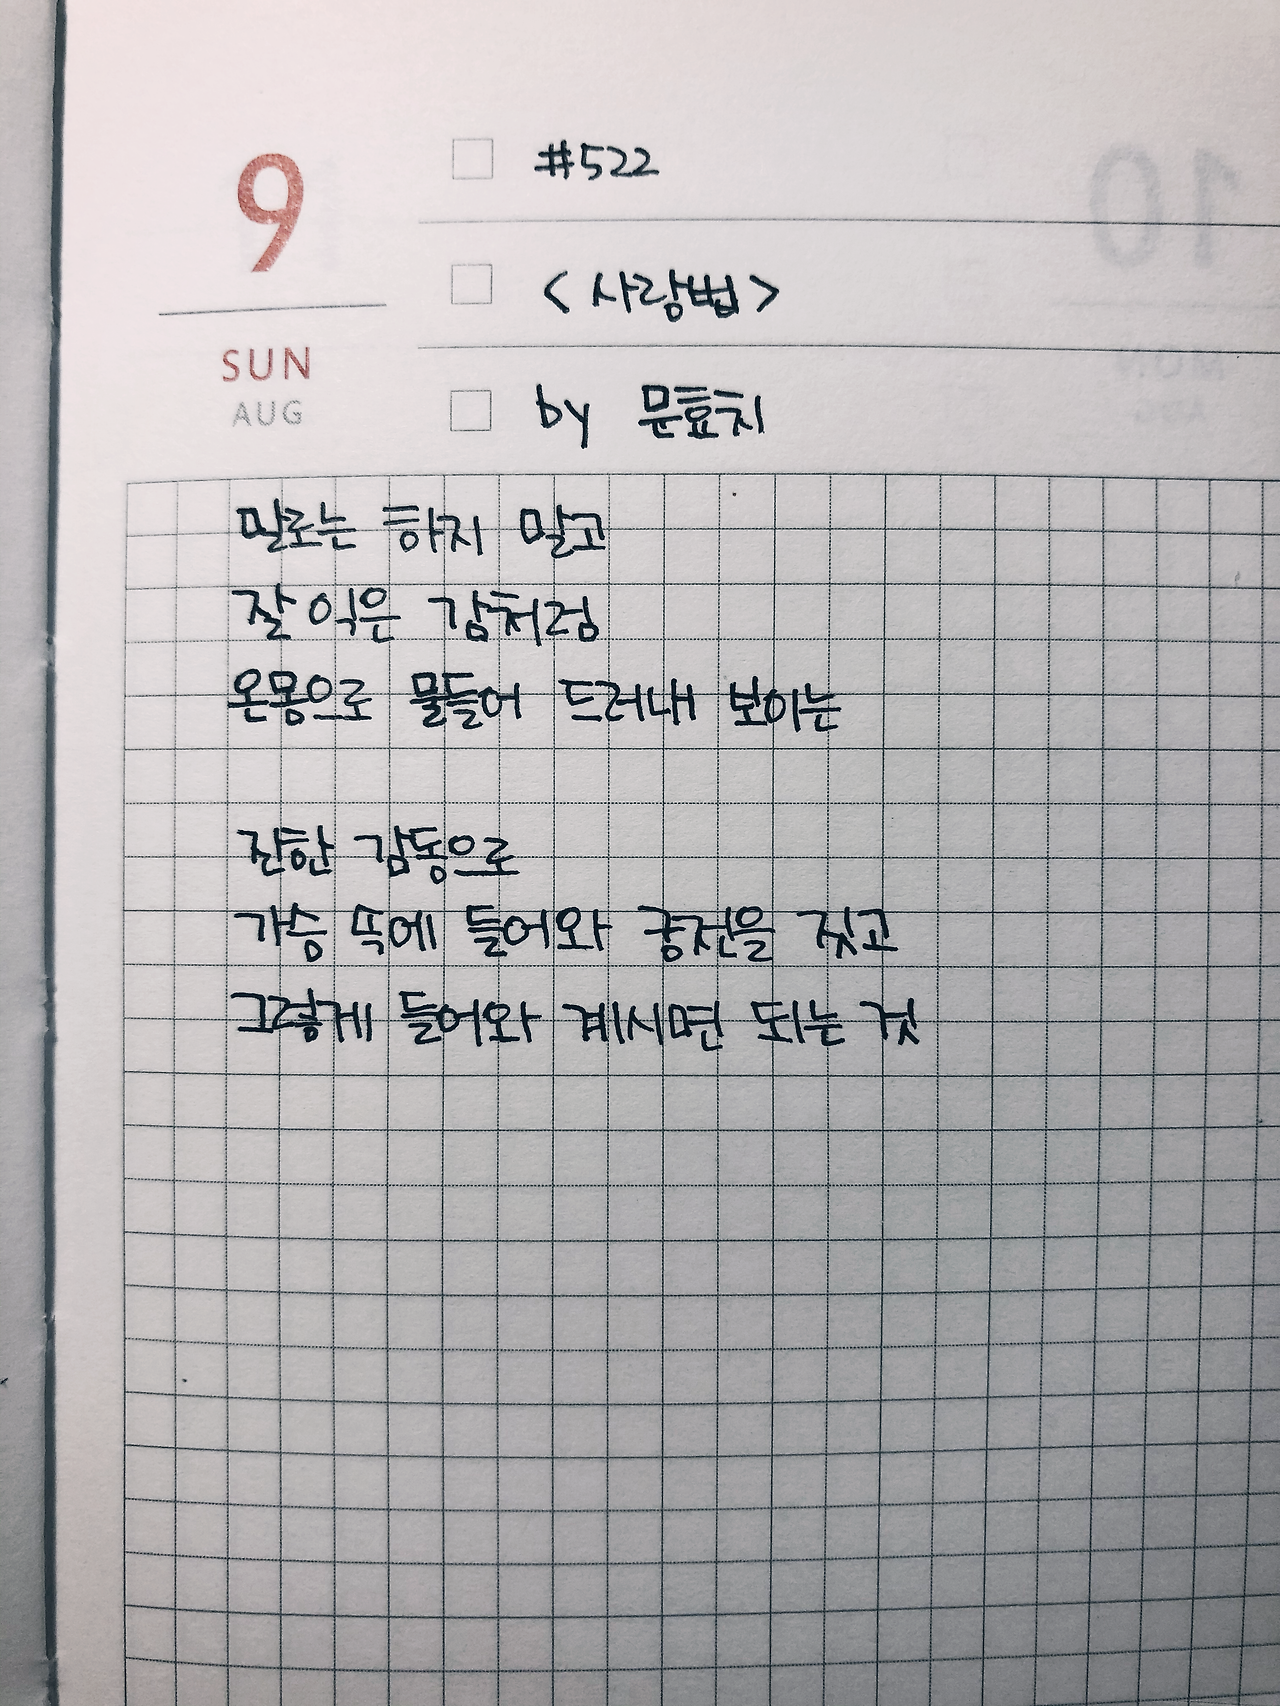 9
SUN
AUG
#522
<사랑법>
by 문효치
말로는 하지 말고
잘 익은 감처럼
온몸으로 물들어 드러내 보이는
진한 감동으로
가슴 속에 들어와 궁전을 짓고
그렇게 들어와 계시면 되는 것
10